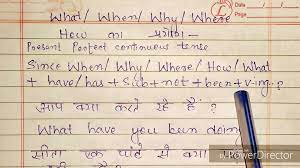 What/ When/ Why/ Where
How का प्रयोग
Present Perfect continuous tense
Since When/ Why/ Where/ How/ What
+ have/has + Sub + not + been + V-ing - ?
आप क्या करते रहे हैं ?
What have you been doin
सीता एक घंटे से क्या
PowerDirector